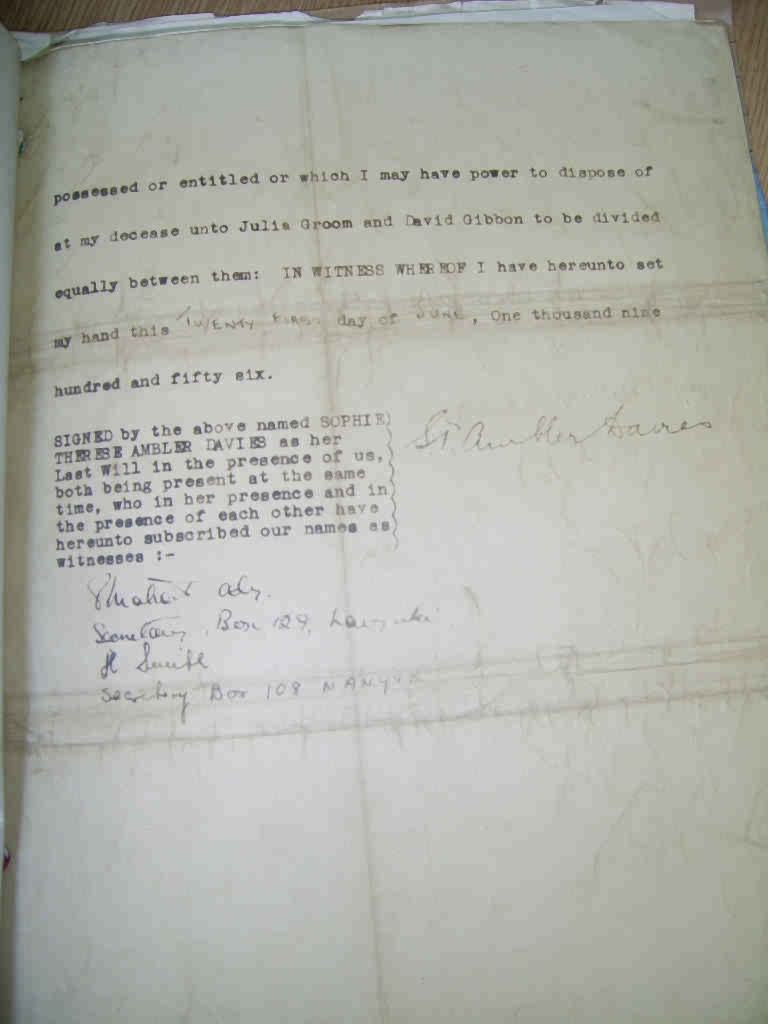 possessed or entitled or which I may have power to dispose of
at my decease unto Julia Groom and David Gibbon to be divided
equally between them: IN WITNESS WHEREOF I have hereunto set
my hand this TWENTY FIRST day of JUNE, One thousand nine
hundred and fifty six.
SIGNED by the above named SOPHIE)
THERESE AMBLER DAVIES as her
Last Will in the presence of us,
both being present at the same
time, who in her presence and in
the presence of each other have
hereunto subscribed our names as
witnesses :-
St. Ambler Davies
Secretary, Box 129,
H Smith
Secretary Box 108 NANYUKI